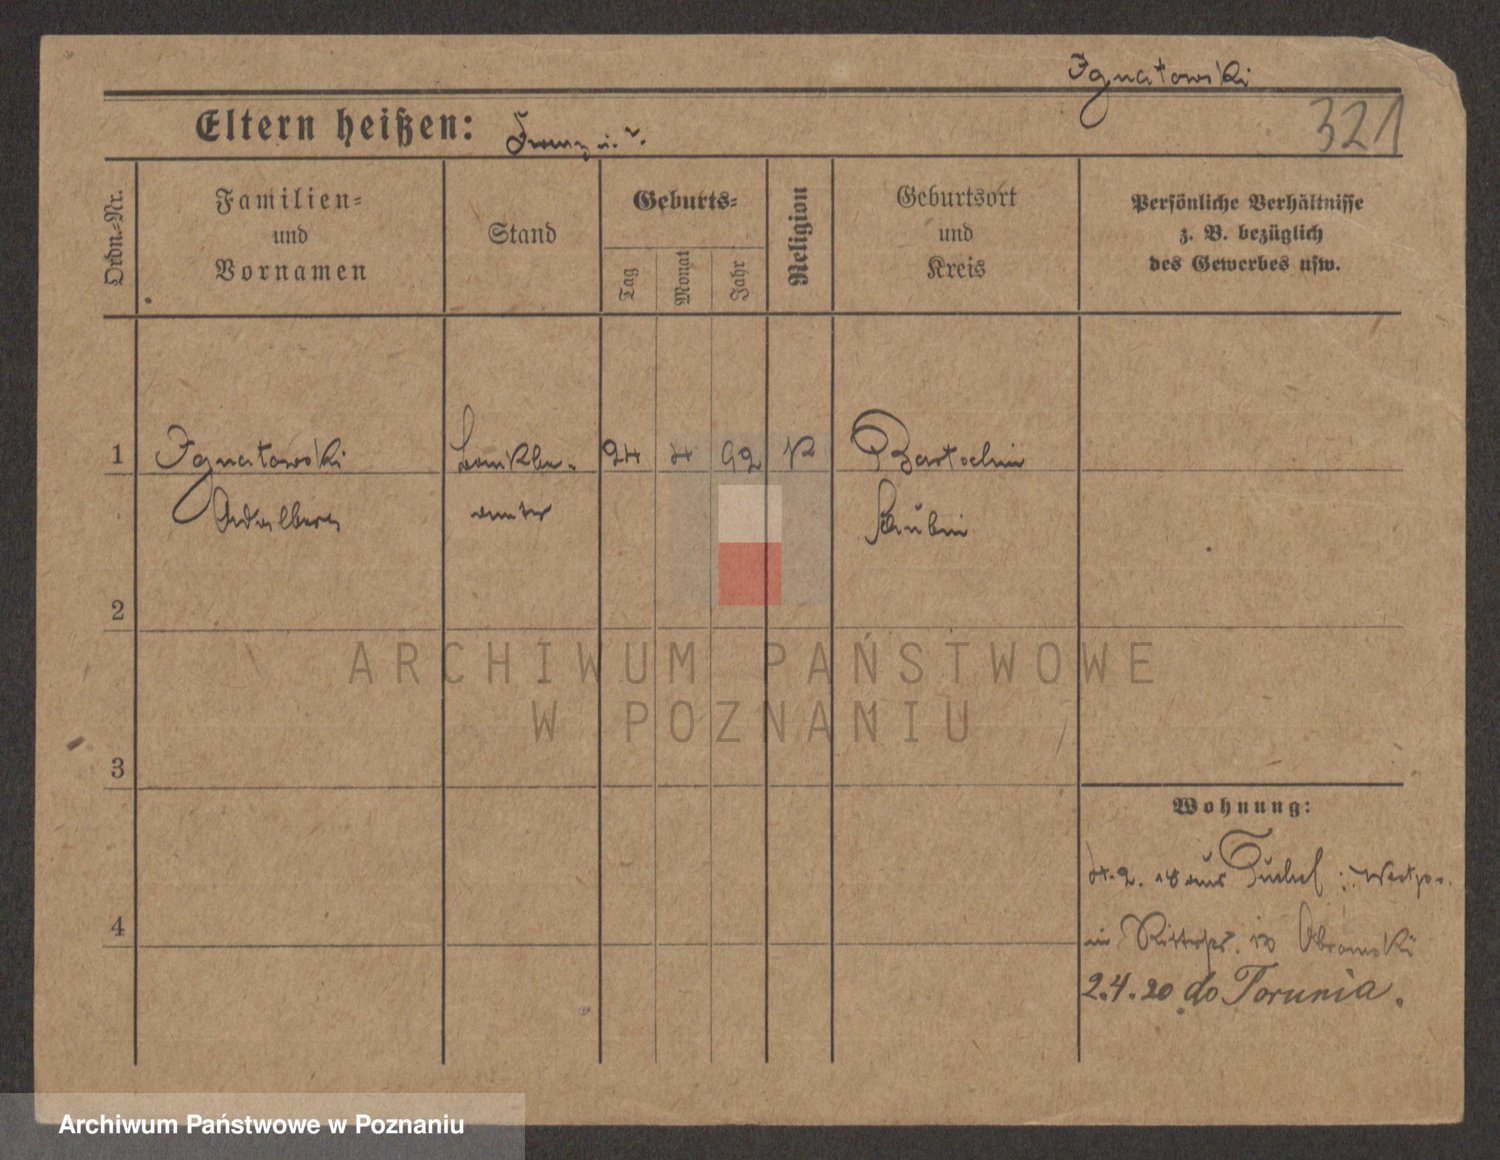 Ignatowski
321
Eltern heißen: Franz u.
Ordn.-Nr.
Familien-
und
Vornamen
Stand
Geburts-
Tag
Monat
Jahr
Religion
Geburtsort
und
Kreis
Persönliche Verhältnisse
z. B. bezüglich
des Gewerbes usw.
1
Ignatowski
Adalbert
Bankbe-
amter
24
4
92
K
Bartschin
Schubin
2
3
4
Wohnung:
2. 18 aus Tuchel Westpr.
in Ritterstr. 10 Abramski
2.4.20 do Torunia.
ARCHIWUM PAŃSTWOWE
W POZNANIU
Archiwum Państwowe w Poznaniu